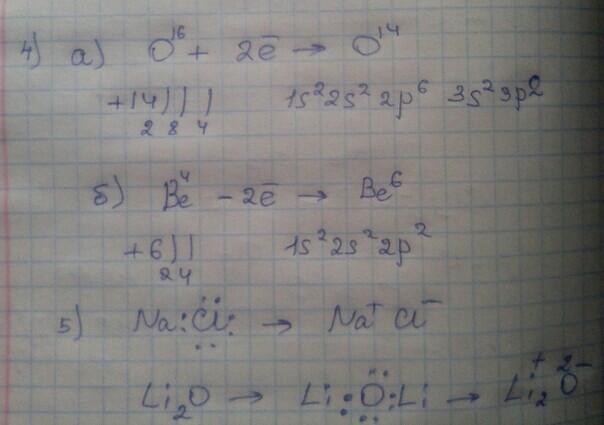 4) а) O¹⁶ + 2ē → O¹⁴
+14) ) ) 1s² 2s² 2p⁶ 3s² 3p²
2 8 4
б) Be⁴ − 2ē → Be⁶
+6) ) 1s² 2s² 2p²
2 4
5) Na:Cl: → Na⁺ Cl⁻
Li₂O → Li:O:Li → Li₂⁺ O²⁻